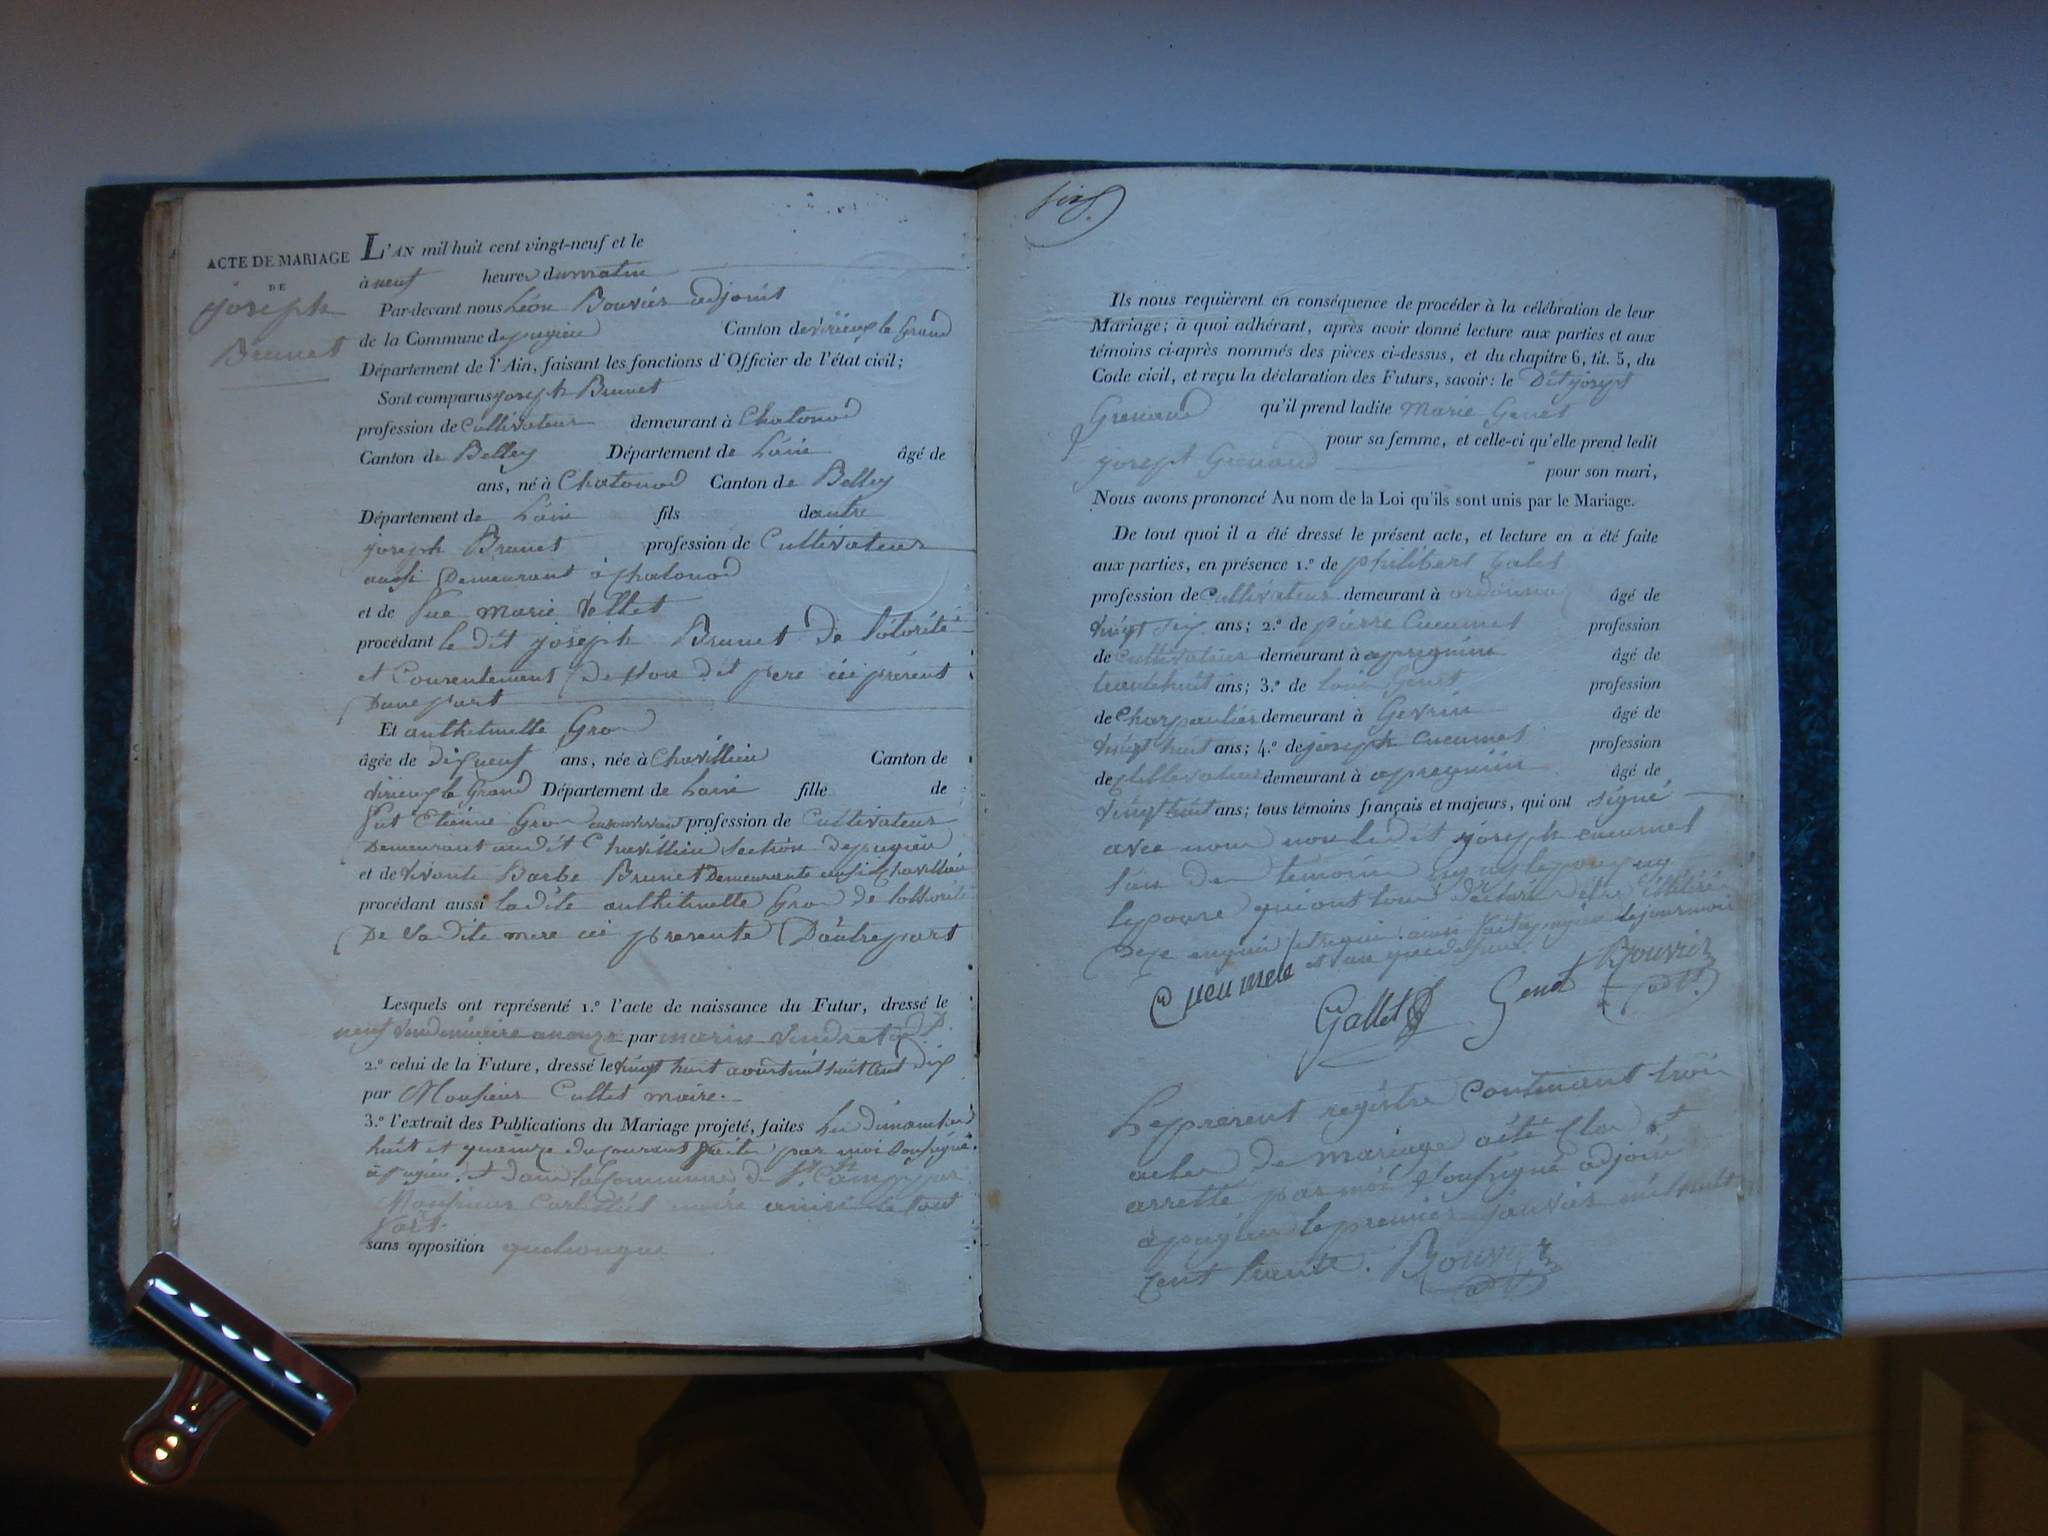 ACTE DE MARIAGE
DE
joseph
Brunet
L'AN mil huit cent vingt-neuf et le
à neuf heures du matin
Par-devant nous Léon Bouvier adjoint
de la Commune de pugieu Canton de virieux le Grand
Département de l'Ain, faisant les fonctions d'Officier de l'état civil;
Sont comparus joseph Brunet
profession de Cultivateur demeurant à Chatonod
Canton de Belley Département de Lain âgé de
ans, né à Chatonod Canton de Belley
Département de Lain fils de autre
joseph Brunet profession de Cultivateur
aussi Demeurant à Chatonod
et de marie Vellet
procédant le dit joseph Brunet de
et Consentement de son dit pere ici présent
Dune part
Et anthelmette Gro
âgée de dix neuf ans, née à Chavillieu Canton de
virieux le Grand Département de Lain fille de
Etienne Gro profession de Cultivateur
Demeurant au dit Chavillieu Section de pugieu
et de vivante Barbe Brunet Demeurante aussi à Chavillieu
procédant aussi ladite anthelmette Gro de
De Sa dite mere ici presente D'autre part
Lesquels ont représenté 1.º l'acte de naissance du Futur, dressé le
neuf Vendemiaire an onze par marin
2.º celui de la Future, dressé le vingt huit aout mil huit Cent dix
par Monsieur Cullet maire.
3.º l'extrait des Publications du Mariage projeté, faites Les dimanches
huit et quainze du Courant par moi Soussigné
à pugieu et dans la Commune de
Monsieur maire le tout
sans opposition quelconque
Ils nous requièrent en conséquence de procéder à la célébration de leur
Mariage; à quoi adhérant, après avoir donné lecture aux parties et aux
témoins ci-après nommés des pièces ci-dessus, et du chapitre 6, tit. 5, du
Code civil, et reçu la déclaration des Futurs, savoir: le Dit josept
Grenaud qu'il prend ladite Marie Genet
pour sa femme, et celle-ci qu'elle prend ledit
josept Grenaud pour son mari,
Nous avons prononcé Au nom de la Loi qu'ils sont unis par le Mariage.
De tout quoi il a été dressé le présent acte, et lecture en a été faite
aux parties, en présence 1.º de philibert Galet
profession de Cultivateur demeurant à âgé de
vingt Six ans; 2.º de pierre Cueumet profession
de Cultivateur demeurant à apregnin âgé de
trante huit ans; 3.º de Louis Genet profession
de Charpantier demeurant à Gevrin âgé de
vingt huit ans; 4.º de joseph Cueumet profession
de Cultivateur demeurant à apregnin âgé de
vingt huit ans; tous témoins français et majeurs, qui ont signé
avec nous non Le dit joseph cueumet
l'un de temoins
qui ont tous déclaré etre
Gallet Genet Bouvier
adt.
Le present registre Contenant trois
actes de mariage a été Clos et
arretté par moi Soussigné adjoint
à pugieu le premier janvier mil huit
Cent trante. Bouvier
adt.